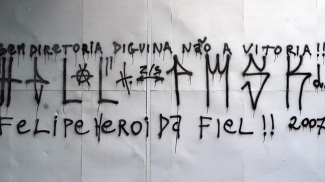 SEM DIRETORIA DIGUINA NÃO A VITORIA!!
Z/S
FELIPE HEROI DA FIEL!! 2007